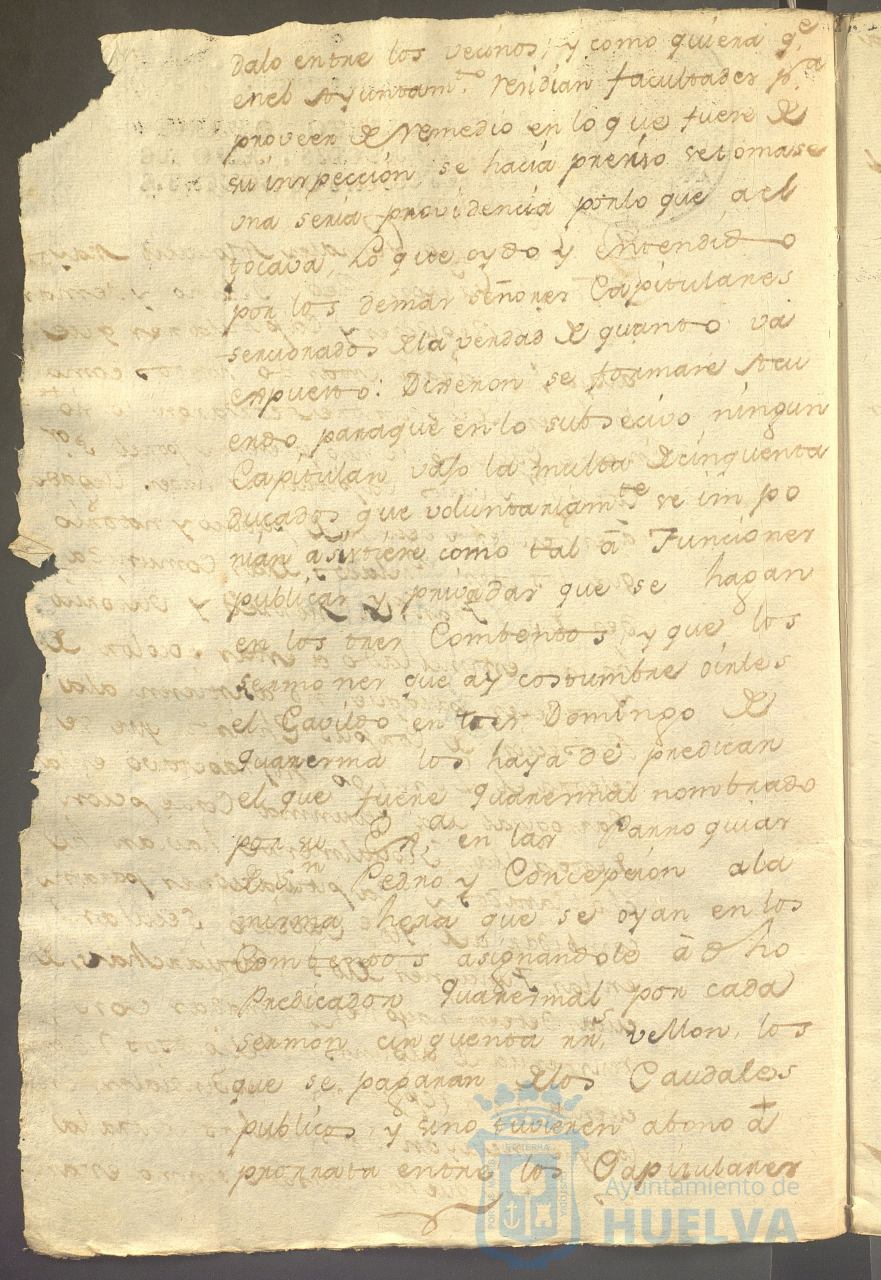 dalo entre los vecinos, y como quiera q.e
en el Ayuntam.to recidian facultades p.a
proveer de remedio en lo que fuere de
su inspección se hacia preciso se tomase
una seria providencia por lo que a el
tocava, Lo que oydo y entendido
por los demas señores Capitulares
serciorados de la verdad de quanto va
expuesto: Dixeron se formase Acu
erdo para que en lo subsecivo ningun
Capitular vajo la multa de cinquenta
Ducados que voluntariam.te se impo
nian asistiere como tal â Funciones
publicas y privadas que se hagan
en los tres Combentos y que los
sermones que ay costumbre oirles
el Cavildo en tres Domingo de
Quaresma los haya de predicar
el que fuere Quaresmal nombrado
por su en las Parroquias
de S.n Pedro y Concepción a la
misma hora que se oyan en los
Combentos asignándole â dho
Predicador Quaresmal por cada
sermón cinquenta rr.s vellon, los
que se pagaran de los Caudales
publicos y sino tuvieren abono â
prorrata entre los Capitulares
Ayuntamiento de
HUELVA